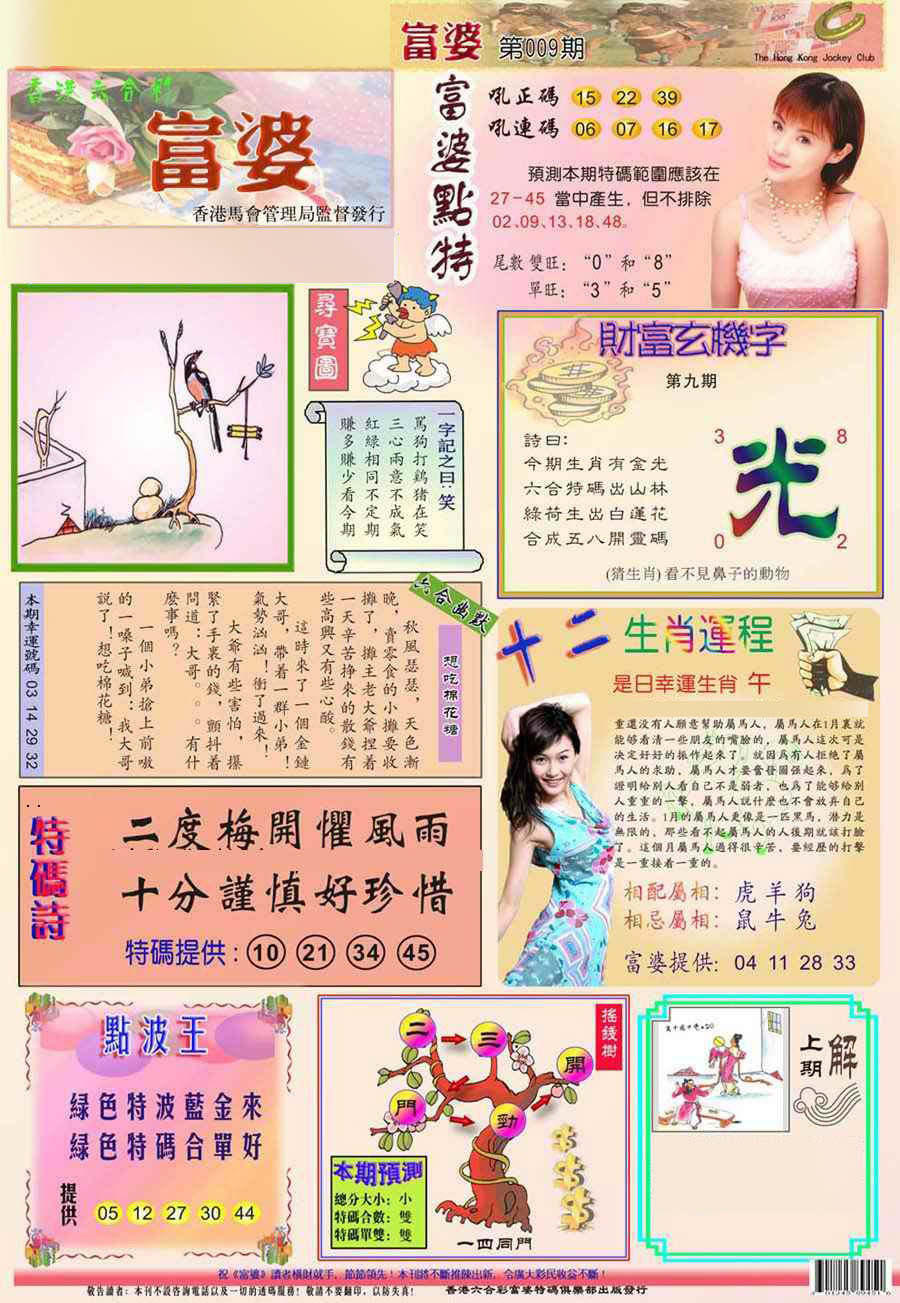 富婆 第009期
The Hong Kong Jockey Club
香港六合彩
富婆
香港馬會管理局監督發行
富婆點特
吼正碼 15 22 39
吼連碼 06 07 16 17
預測本期特碼範圍應該在
27-45 當中產生，但不排除
02、09、13、18、48。
尾數雙旺：“0”和“8”
單旺：“3”和“5”
尋寶圖
一字記之曰：笑
罵狗打鷄猪在笑
三心兩意不成氣
紅綠相同不定期
賺多賺少看今期
財富玄機字
第九期
詩曰：
今期生肖有金光
六合特碼出山林
綠荷生出白蓮花
合成五八開靈碼
3 8
光
0 2
(猜生肖)看不見鼻子的動物
六合幽默
想吃棉花糖
秋風瑟瑟，天色漸
晚，賣零食的小攤要收
攤了，攤主老大爺捏着
一天辛苦挣來的散錢有
些高興又有些心酸。
這時來了一個金鏈
大哥，帶着一群小弟！
氣勢汹汹！衝了過來！
大爺有些害怕，攥
緊了手裏的錢，顫抖着
問道：大哥。。。有什
麽事嗎？
一個小弟搶上前嗷
的一嗓子喊到：我大哥
說了！想吃棉花糖！
本期幸運號碼 03 14 29 32
十二生肖運程
是日幸運生肖 午
重還没有人願意幫助屬馬人，屬馬人在1月裏就
能够看清一些朋友的嘴臉的，屬馬人這次可是
决定好好的振作起來了，就因爲有人拒絶了屬
馬人的求助，屬馬人才要奮發圖强起來，爲了
證明给别人看自己不是弱者，也爲了能够给别
人重重的一擊，屬馬人説什麽也不會放弃自己
的生活。1月的屬馬人更像是一匹黑馬，潜力是
無限的，那些看不起屬馬人的人後期就該打臉
了。這個月屬馬人過得很辛苦，要經歷的打擊
是一重接着一重的。
相配屬相：虎羊狗
相忌屬相：鼠牛兔
富婆提供：04 11 28 33
特碼詩
二度梅開懼風雨
十分謹慎好珍惜
特碼提供：10 21 34 45
點波王
綠色特波藍金來
綠色特碼合單好
提供 05 12 27 30 44
搖錢樹
二 三 開
門 勁
本期預測
總分大小：小
特碼合數：雙
特碼單雙：雙
一四同門
上期解
祝《富婆》讀者橫財就手，節節領先！本刊將不斷推陳出新，令廣大彩民收益不斷！
敬告讀者：本刊不設咨詢電話以及一切的透碼服務！敬請不要翻印，以防失真！
香港六合彩富婆特碼俱樂部出版發行